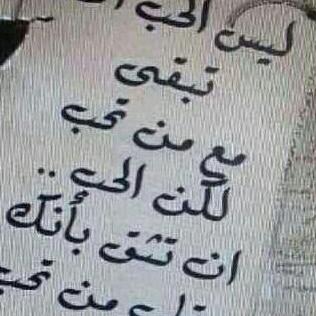 ليس الحب
تبقى
مع من تحب
لكن الحب ..
ان تثق بأنك
من تحب